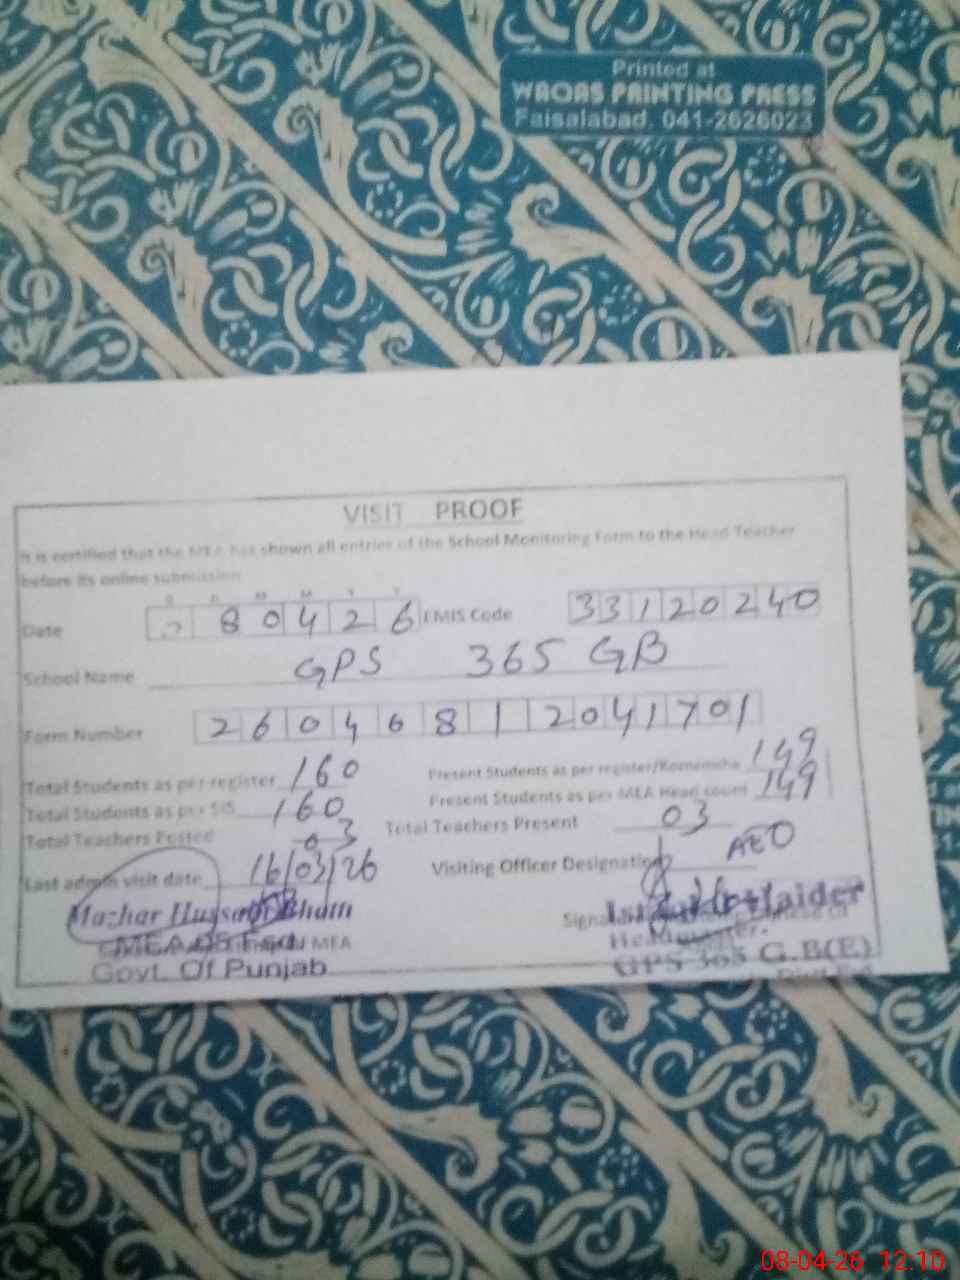 Printed at
WAQAS PRINTING PRESS
Faisalabad. 041-2626023
VISIT PROOF
It is certified that the MEA has shown all entries of the School Monitoring Form to the Head Teacher
before its online submission
D D M M Y Y
Date 080426 EMIS Code 33120240
School Name GPS 365 GB
Form Number 26046812041701
Total Students as per register 160 Present Students as per register/Roznamcha 149
Total Students as per SIS 160 Present Students as per MEA Head count 149
Total Teachers Posted 03 Total Teachers Present 03
Last admin visit date 16/03/26 Visiting Officer Designation AEO
Mazhar Hussain Bhatti
MEA
Govt. Of Punjab
Haider
Headmaster.
GPS 365 G.B(E)
08-04-26 12:10